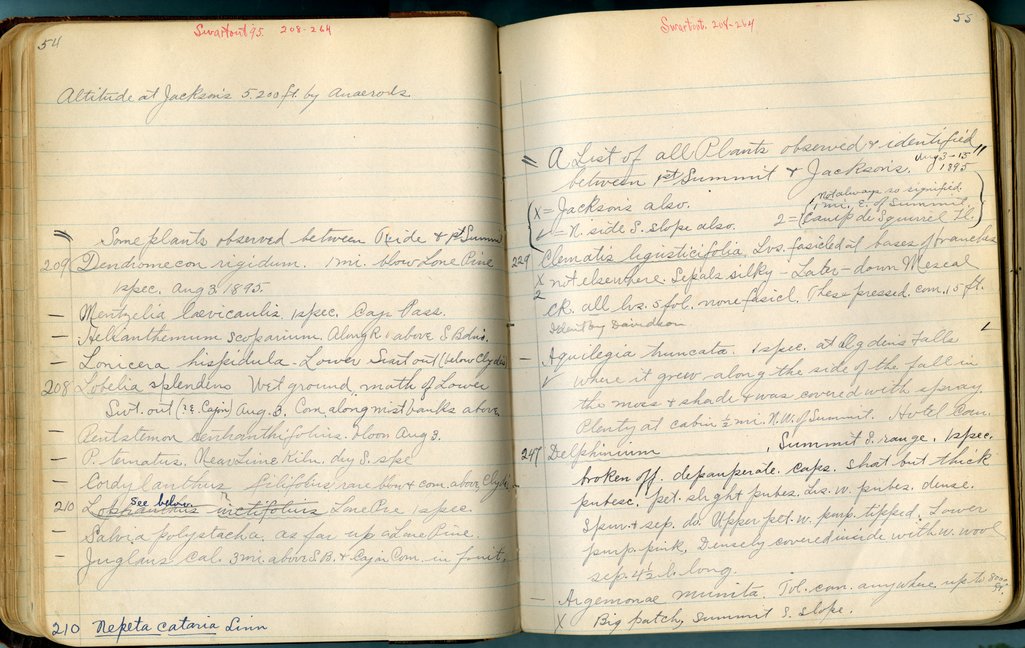 54
Swartout 95. 208-264
Altitude at Jackson's 5,200 ft. by Anaerods
Some plants observed between Ride & 1st Summ
209 Dendromecon rigidum. 1 mi. blow Lone Pine
1 spec. Aug 3. 1895.
— Mentzelia laevicaulis. 1 spec. Caj. Pass.
— Helianthemum scoparium. Along R. above S. Bdno.
— Lonicera hispidula. Lower Swartout (below Clyde's)
208 Lobelia splendens Wet ground, mouth of Lower
Swt. out (i.e. Cajon) Aug. 3. Com. along moist banks above
— Pentstemon centranthifolius. bloom Aug 3.
— P. ternatus. Near Lime Kiln. dry S. spe
— Cordylanthus filifolius rare blow & com. above Clyde
see below
210 Lophanthus Lone Pine 1 spec.
— Salvia polystacha, as far up as Lone Pine.
— Juglans Cal. 3 mi. above S.B. & Cajon Com. in fruit.
210 Nepeta cataria Linn
55
Swartout. 208-264
" A List of all Plants observed & identified
between 1st Summit & Jackson's. " Aug 3-15
1895
X = Jackson's also. Not always so signified.
1 mi. E. of Summit
✓ = N. side S. slope also. 2 = Camp de Squirrel Fl.
229 Clematis ligusticifolia, Lvs. fasicled at bases of branches
X not elsewhere. Sepals silky – Later – down Mescal
2 Ck. all lvs. 5 fol. none fasicl. These pressed. com. 15 ft.
Ident by Davidson
— Aquilegia truncata. 1 spec. at Falls
✓ where it grew along the side of the fall in
the moss & shade & was covered with spray
Plenty at cabin ½ mi. N.W. of Summit. Hotel Can.
247 Delphinium , Summit S. range. 1 spec.
broken off. depauperate. caps. short but thick
pubesc. pet. slight pubes. Lvs. w. pubes. dense.
Spur & sep. do. Upper pet. w. purp. tipped. Lower
purp. pink, Densely covered inside with w. wool
sep. 4½ l. long.
— Argemone munita. Tol. com. anywhere up to 8000 ft.
X Big patch, Summit S. slope.